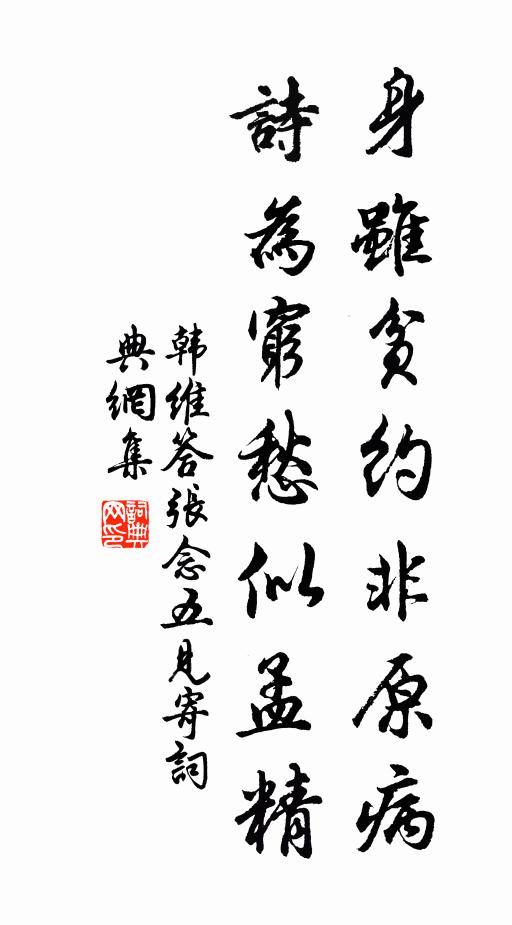 身雖貧約非原病
詩為窮愁似孟精
韩維答張念五見寄詞
典網集
詞典
网印